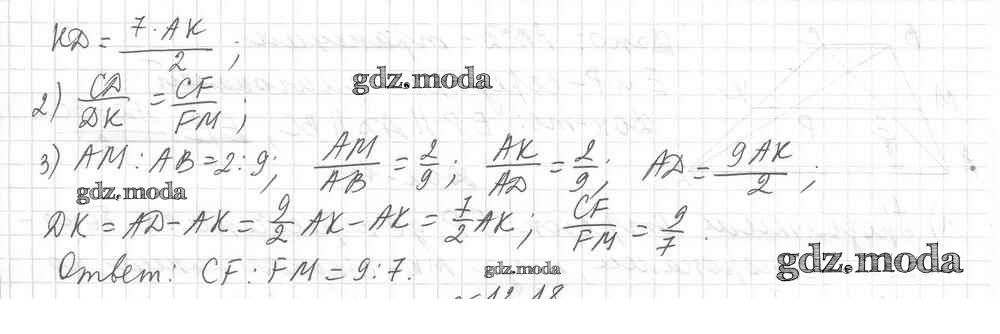 KD = 7·AK / 2 ;
gdz.moda
2) CD/DK = CF/FM ;
3) AM : AB = 2 : 9; AM/AB = 2/9 ; AK/AD = 2/9 ; AD = 9AK/2 ;
gdz.moda
DK = AD - AK = 9/2 AK - AK = 7/2 AK ; CF/FM = 9/7 .
Ответ: CF : FM = 9 : 7.
gdz.moda
gdz.moda